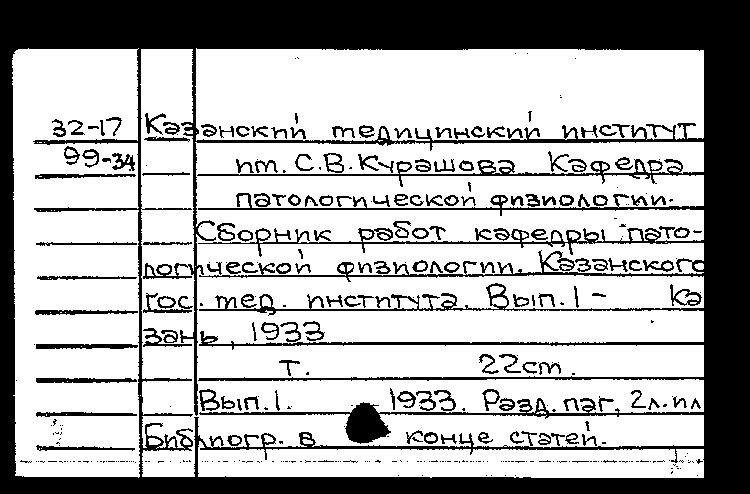 32-17 Казанский медицинский институт
99-34 им. С.В. Курашова Кафедра
патологической физиологии.
Сборник работ кафедры пато-
логической физиологии. Казанского
гос. мед. института. Вып. 1 - Ка
зань, 1933
т. 22см.
Вып. 1. 1933. Разд. паг, 2л. ил
Библиогр. в конце статей.